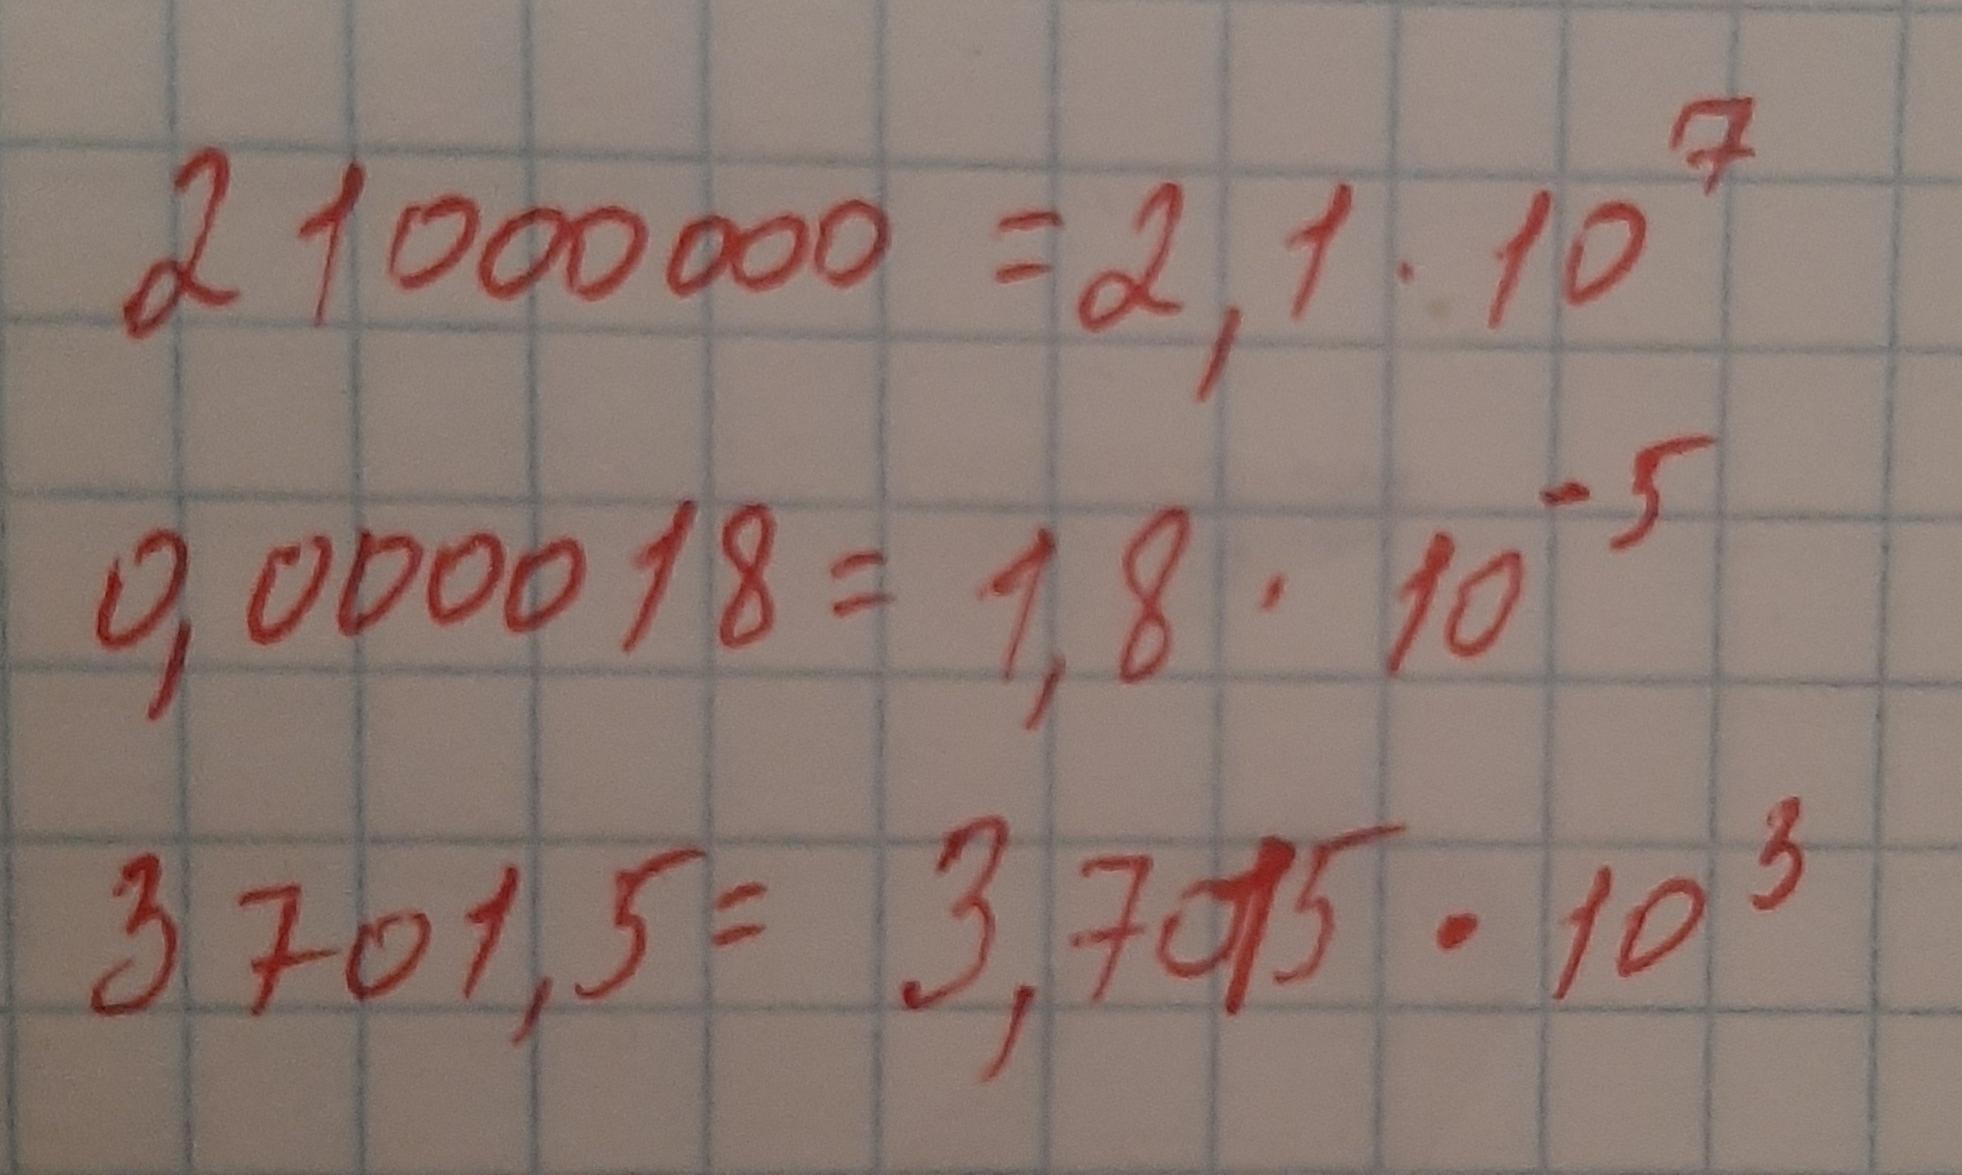 21000000 = 2,1 · 10⁷
0,000018 = 1,8 · 10⁻⁵
3701,5 = 3,7015 · 10³